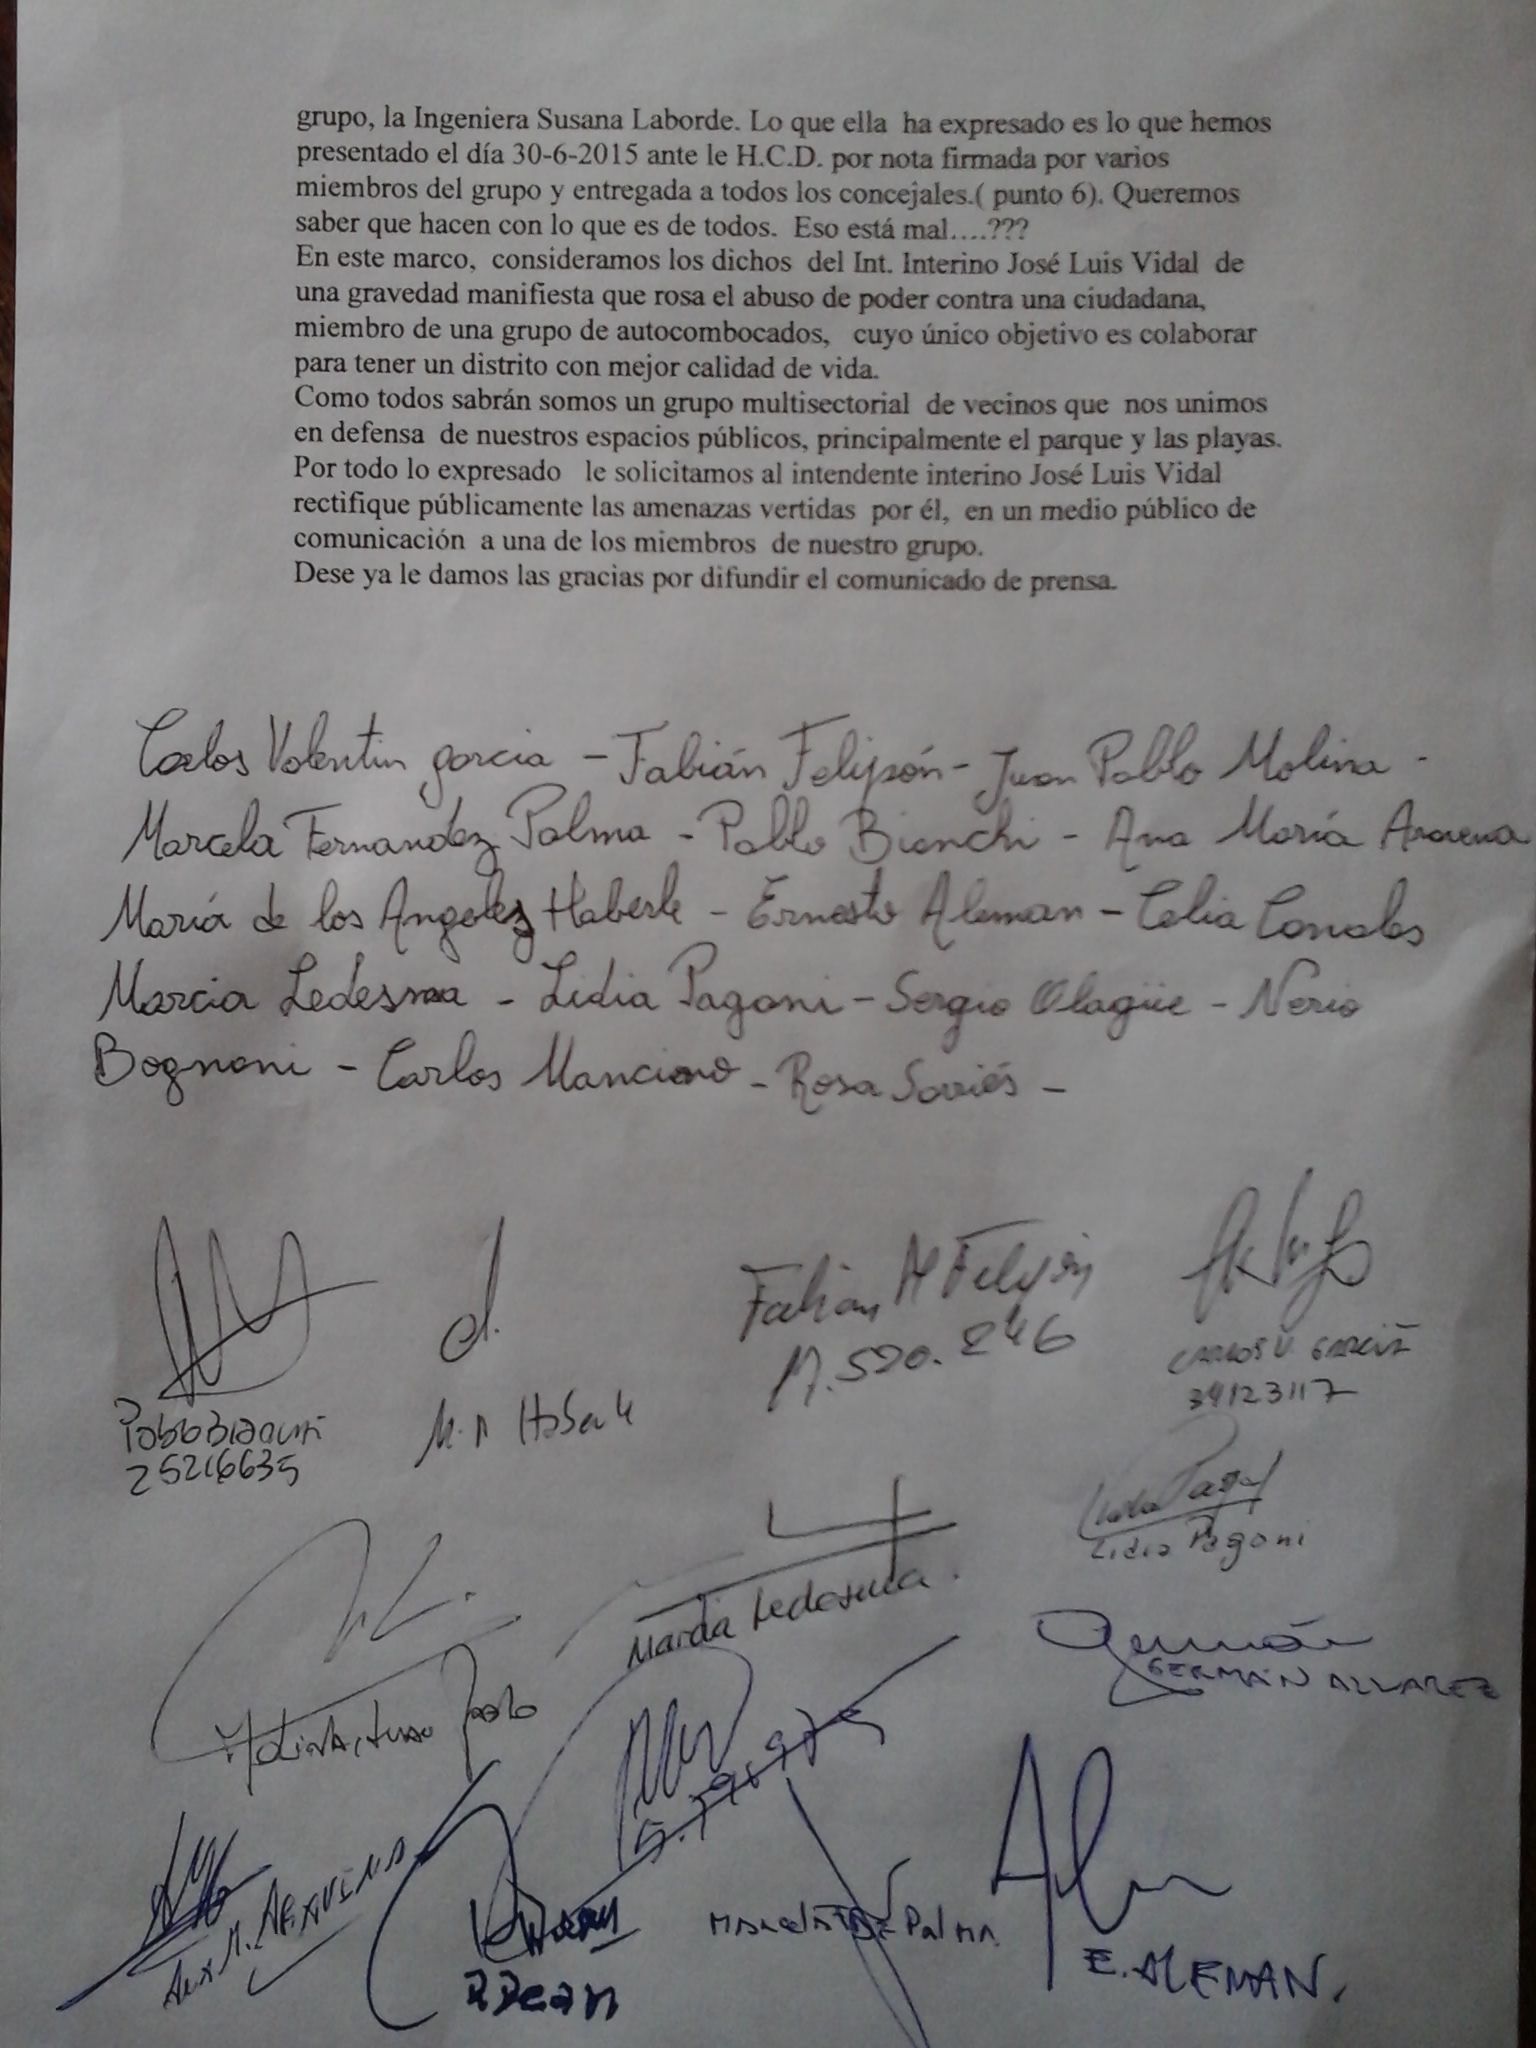 grupo, la Ingeniera Susana Laborde. Lo que ella ha expresado es lo que hemos
presentado el día 30-6-2015 ante le H.C.D. por nota firmada por varios
miembros del grupo y entregada a todos los concejales.( punto 6). Queremos
saber que hacen con lo que es de todos. Eso está mal….???
En este marco, consideramos los dichos del Int. Interino José Luis Vidal de
una gravedad manifiesta que rosa el abuso de poder contra una ciudadana,
miembro de una grupo de autocombocados, cuyo único objetivo es colaborar
para tener un distrito con mejor calidad de vida.
Como todos sabrán somos un grupo multisectorial de vecinos que nos unimos
en defensa de nuestros espacios públicos, principalmente el parque y las playas.
Por todo lo expresado le solicitamos al intendente interino José Luis Vidal
rectifique públicamente las amenazas vertidas por él, en un medio público de
comunicación a una de los miembros de nuestro grupo.
Dese ya le damos las gracias por difundir el comunicado de prensa.
Carlos Valentin garcia - Fabián Felipón - Juan Pablo Molina -
Marcela Fernandez Palma - Pablo Bianchi - Ana María Aravena
María de los Angeles Haberle - Ernesto Aleman - Celia Canales
Marcia Ledesma - Lidia Pagani - Sergio Olagüe - Nerio
Bognani - Carlos Manciano - Rosa -
Fabian M Felipón
CARLOS V. GARCIA
34123117
Pablo Bianchi
25216635
M. A Haberle
Lidia Pagani
Marcia Ledesma.
GERMÁN ALVAREZ
Ana M. ARAVENA
Palma
E. ALEMAN.